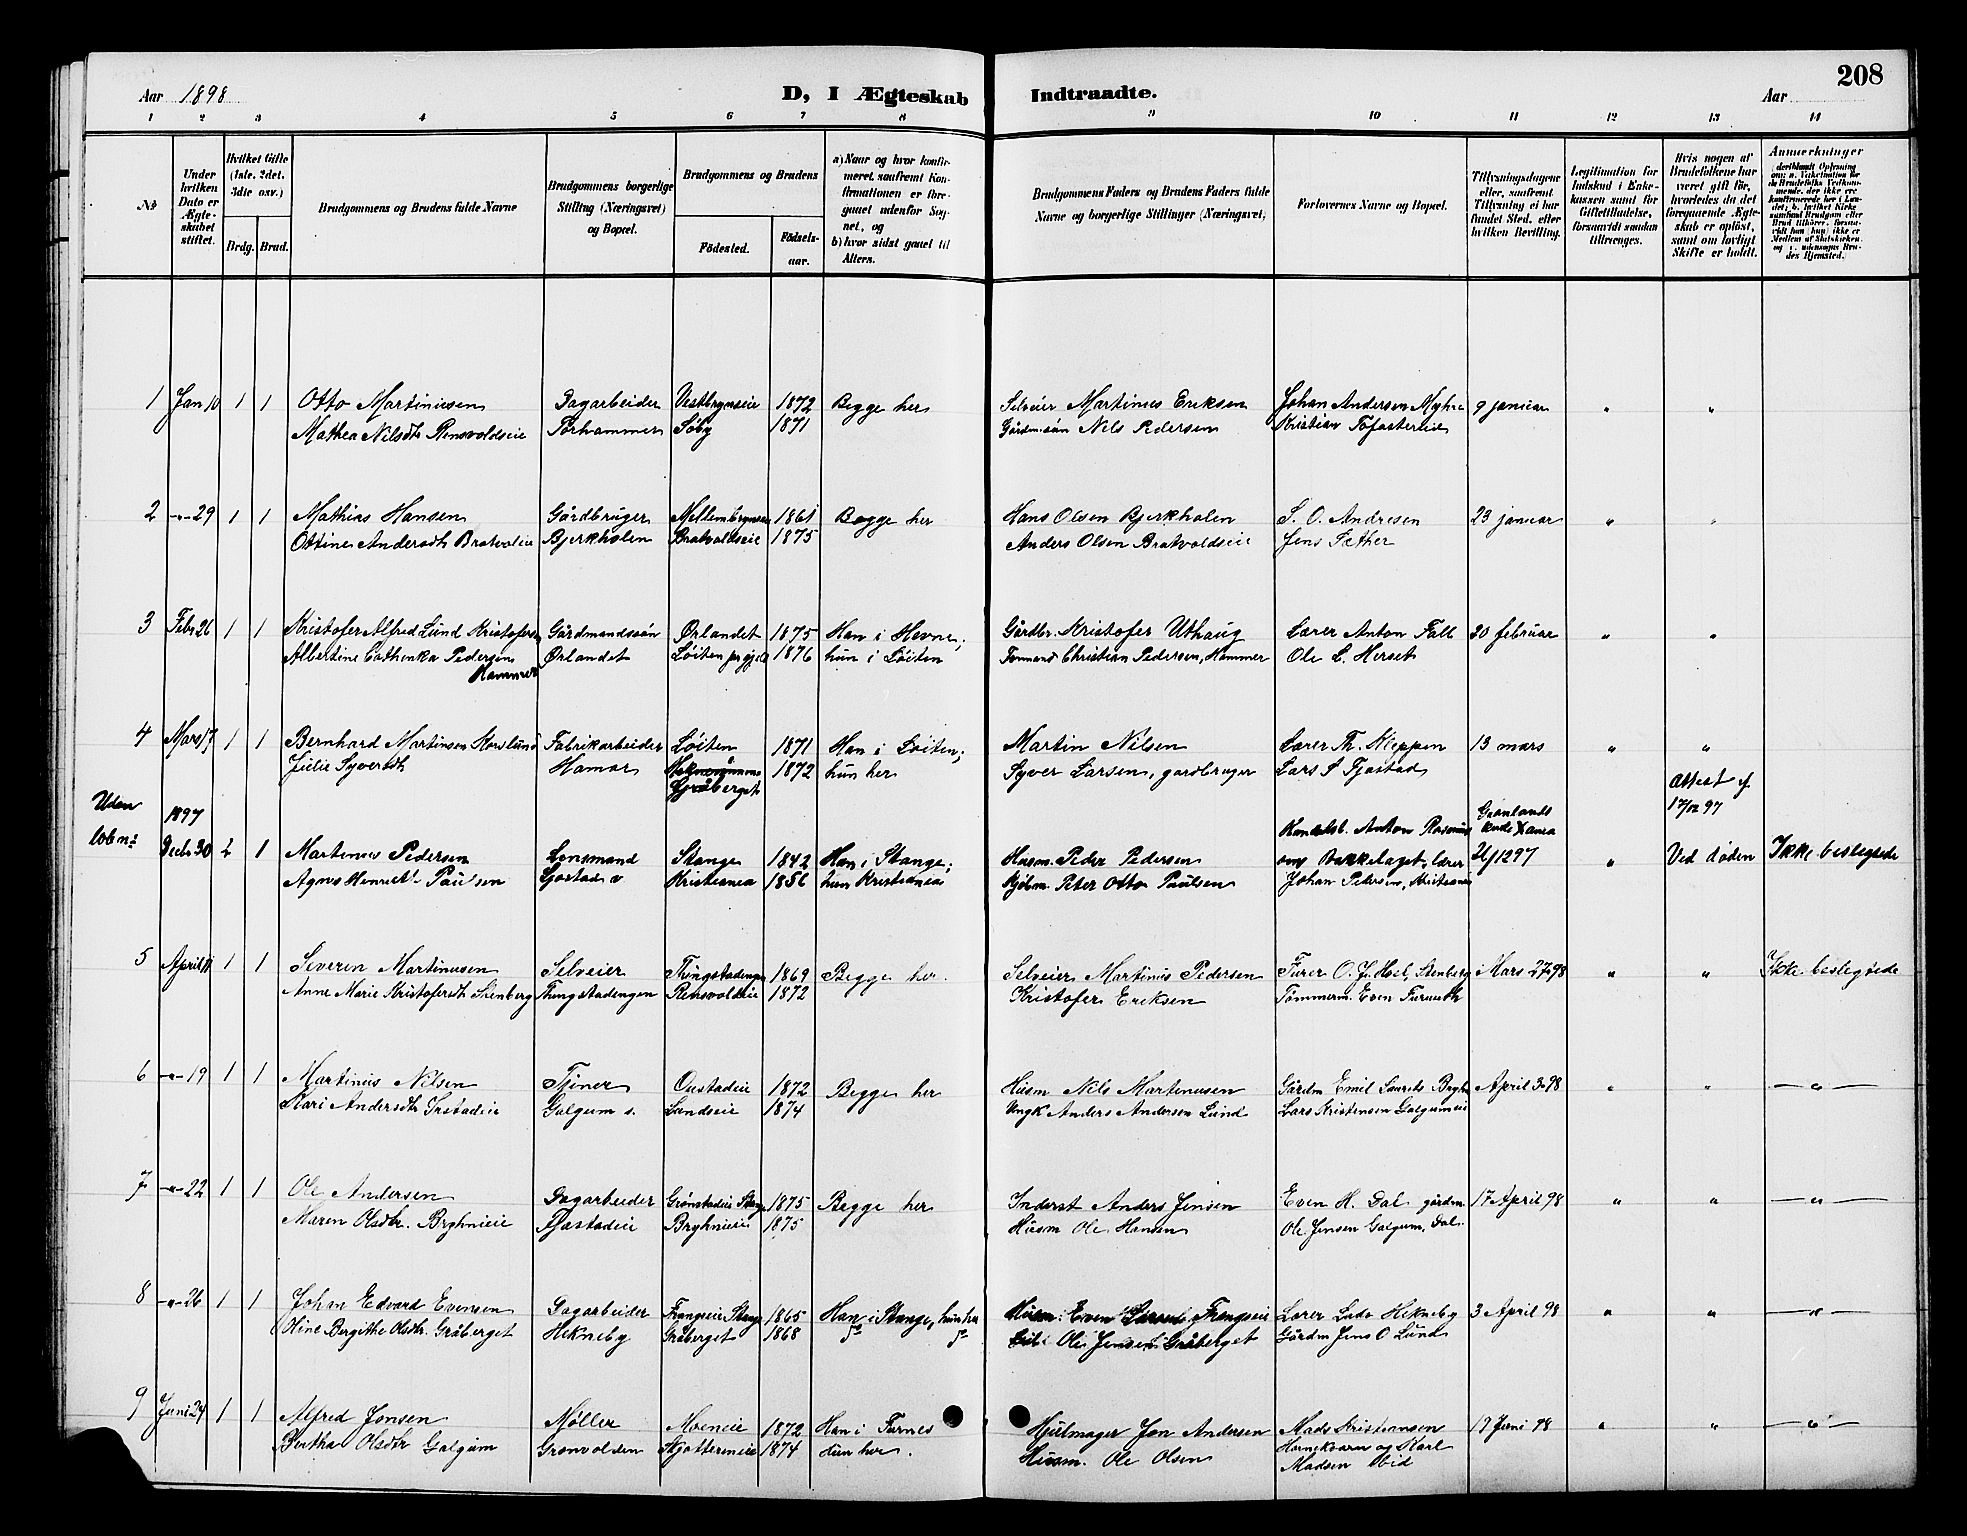 208
Aar 1898
D, I Ægteskab Indtraadte.
Aar
1 2 3 4 5 6 7 8 9 10 11 12 13 14
№
Under hvilken Dato er Ægteskabet stiftet.
Hvilket Gifte (1ste, 2det, 3die osv.)
Brdg. Brud.
Brudgommens og Brudens fulde Navne
Brudgommens borgerlige Stilling (Næringsvei) og Bopæl.
Brudgommens og Brudens
Födested.
Födselsaar.
a) Naar og hvor konfirmeret, saafremt Konfirmationen er foregaaet udenfor Sognet, og
b) hvor sidst gaaet til Alters.
Brudgommens Faders og Brudens Faders fulde Navne og borgerlige Stillinger (Næringsvei)
Forlovernes Navne og Bopæl.
Tillysningsdagene eller, saafremt Tillysning ei har fundet Sted, efter hvilken Bevilling.
Legitimation for Indskud i Enkekassen samt for Giftetilladelse, forsaavidt saadan tiltrænges.
Hvis nogen af Brudefolkene har været gift för, hvorledes da det foregaaende Ægteskab er oplöst, samt om lovligt Skifte er holdt.
Anmerkninger
1 Jan 10 1 1 Otto Martinusen Dagarbeider Vestbrynseie 1872 Begge her Selveier Martinus Eriksen Johan Andersen Myhre 9 januar " "
Mathea Nilsdtr Rensvoldseie Torhammer Söby 1871 Gårdmson Nils Pedersen Kristian
2 -"- 29 1 1 Mathias Hansen Gårdbruger 1861 Begge her Hans Olsen Bjerkholen S. O. Andresen 23 januar " "
Ottine Andersdtr Bratvoldeie Bjerkholen Bratvoldseie 1875 Anders Olsen Bratvoldseie Jens Sæther
3 Febr 26 1 1 Kristofer Alfred Lund Kristofersen Gårdmandssön Ørlandet 1875 Han i Hevne; Gårdbr. Kristofer Uthaug Lærer Anton Fall 20 februar " "
Albertine Cathenka Pedersen Ørlandet Löiten prgjeld 1876 hun i Löiten Christian Pedersen, Hammer Ole L. Herset
Hammer
4 Mars 17 1 1 Bernhard Martinsen Fabrikarbeider Löiten 1871 Han i Löiten; Martin Nilsen Lærer Th. Kleppen 13 mars " "
Julie Syversdtr Hamar 1872 hun her Syver Larsen, gardbruger Lars S Tjøstad
Gråberget
Uden 1897 Attest af
17/12 97
Decbr 30 2 1 Martinus Pedersen Lensmand Stange 1842 Han i Stange; Husm. Peder Pedersen Bækkelaget, lærer 21/12 97 " Ved döden Ikke beslegtede
Paulsen Kristiania 1856 hun Kristiania Kjöbm. Peter Otto Paulsen Johan Petersen, Kristiania
5 April 11 1 1 Severin Martinusen Selveier Thingstadengen 1869 Begge her Selveier Martinus Pedersen O. J. Hoel, Stenberg Mars 27-98 " " Ikke beslegtede
Anne Marie Kristofersdtr Stenberg Thingstadengen Rensvoldeie 1872 Kristofer Eriksen Tömmerm. Even Furuseth
6 -"- 19 1 1 Martinus Nilsen Tjener 1872 Begge her Husm Nils Martinusen Gårdm Emil Laurits Bryhn April 3-98 " " -"-
Kari Andersdtr Galgum s. Lundseie 1874 Ungk Anders Andersen Lund Lars Kristensen Galgumeie
7 -"- 22 1 1 Ole Andersen Dagarbeider Grönstadeie Stange 1875 Begge her Inderst Anders Jensen Even H. Dal gårdm 17 April 98 " " -"-
Maren Olsdtr. Bryhnieie Tjøstadeie Bryhnieie 1875 Husm Ole Hansen Ole Jensen Galgum, Dal.
8 -"- 26 1 1 Johan Edvard Evensen Dagarbeider Frangseie Stange 1865 Han i Stange, hun her Husm: Even Larsen, Frangseie Lærer Hekneby 3 April 98 " " -"-
Oline Bergithe Olsdtr. Gråberget Hekneby Gråberget 1868 Ole Jensen Gråberget Gårdm Jens O Lund
9 Juni 24 1 1 Alfred Jonsen Møller Moeneie 1872 Han i Furnes Hjulmager Jon Andersen Mads Kristiansen 19 Juni 98 " " -"-
Bertha Olsdtr Galgum Grönvolden 1874 Hun her. Husm. Ole Olsen Hornekvern og Karl
Madsen ibid